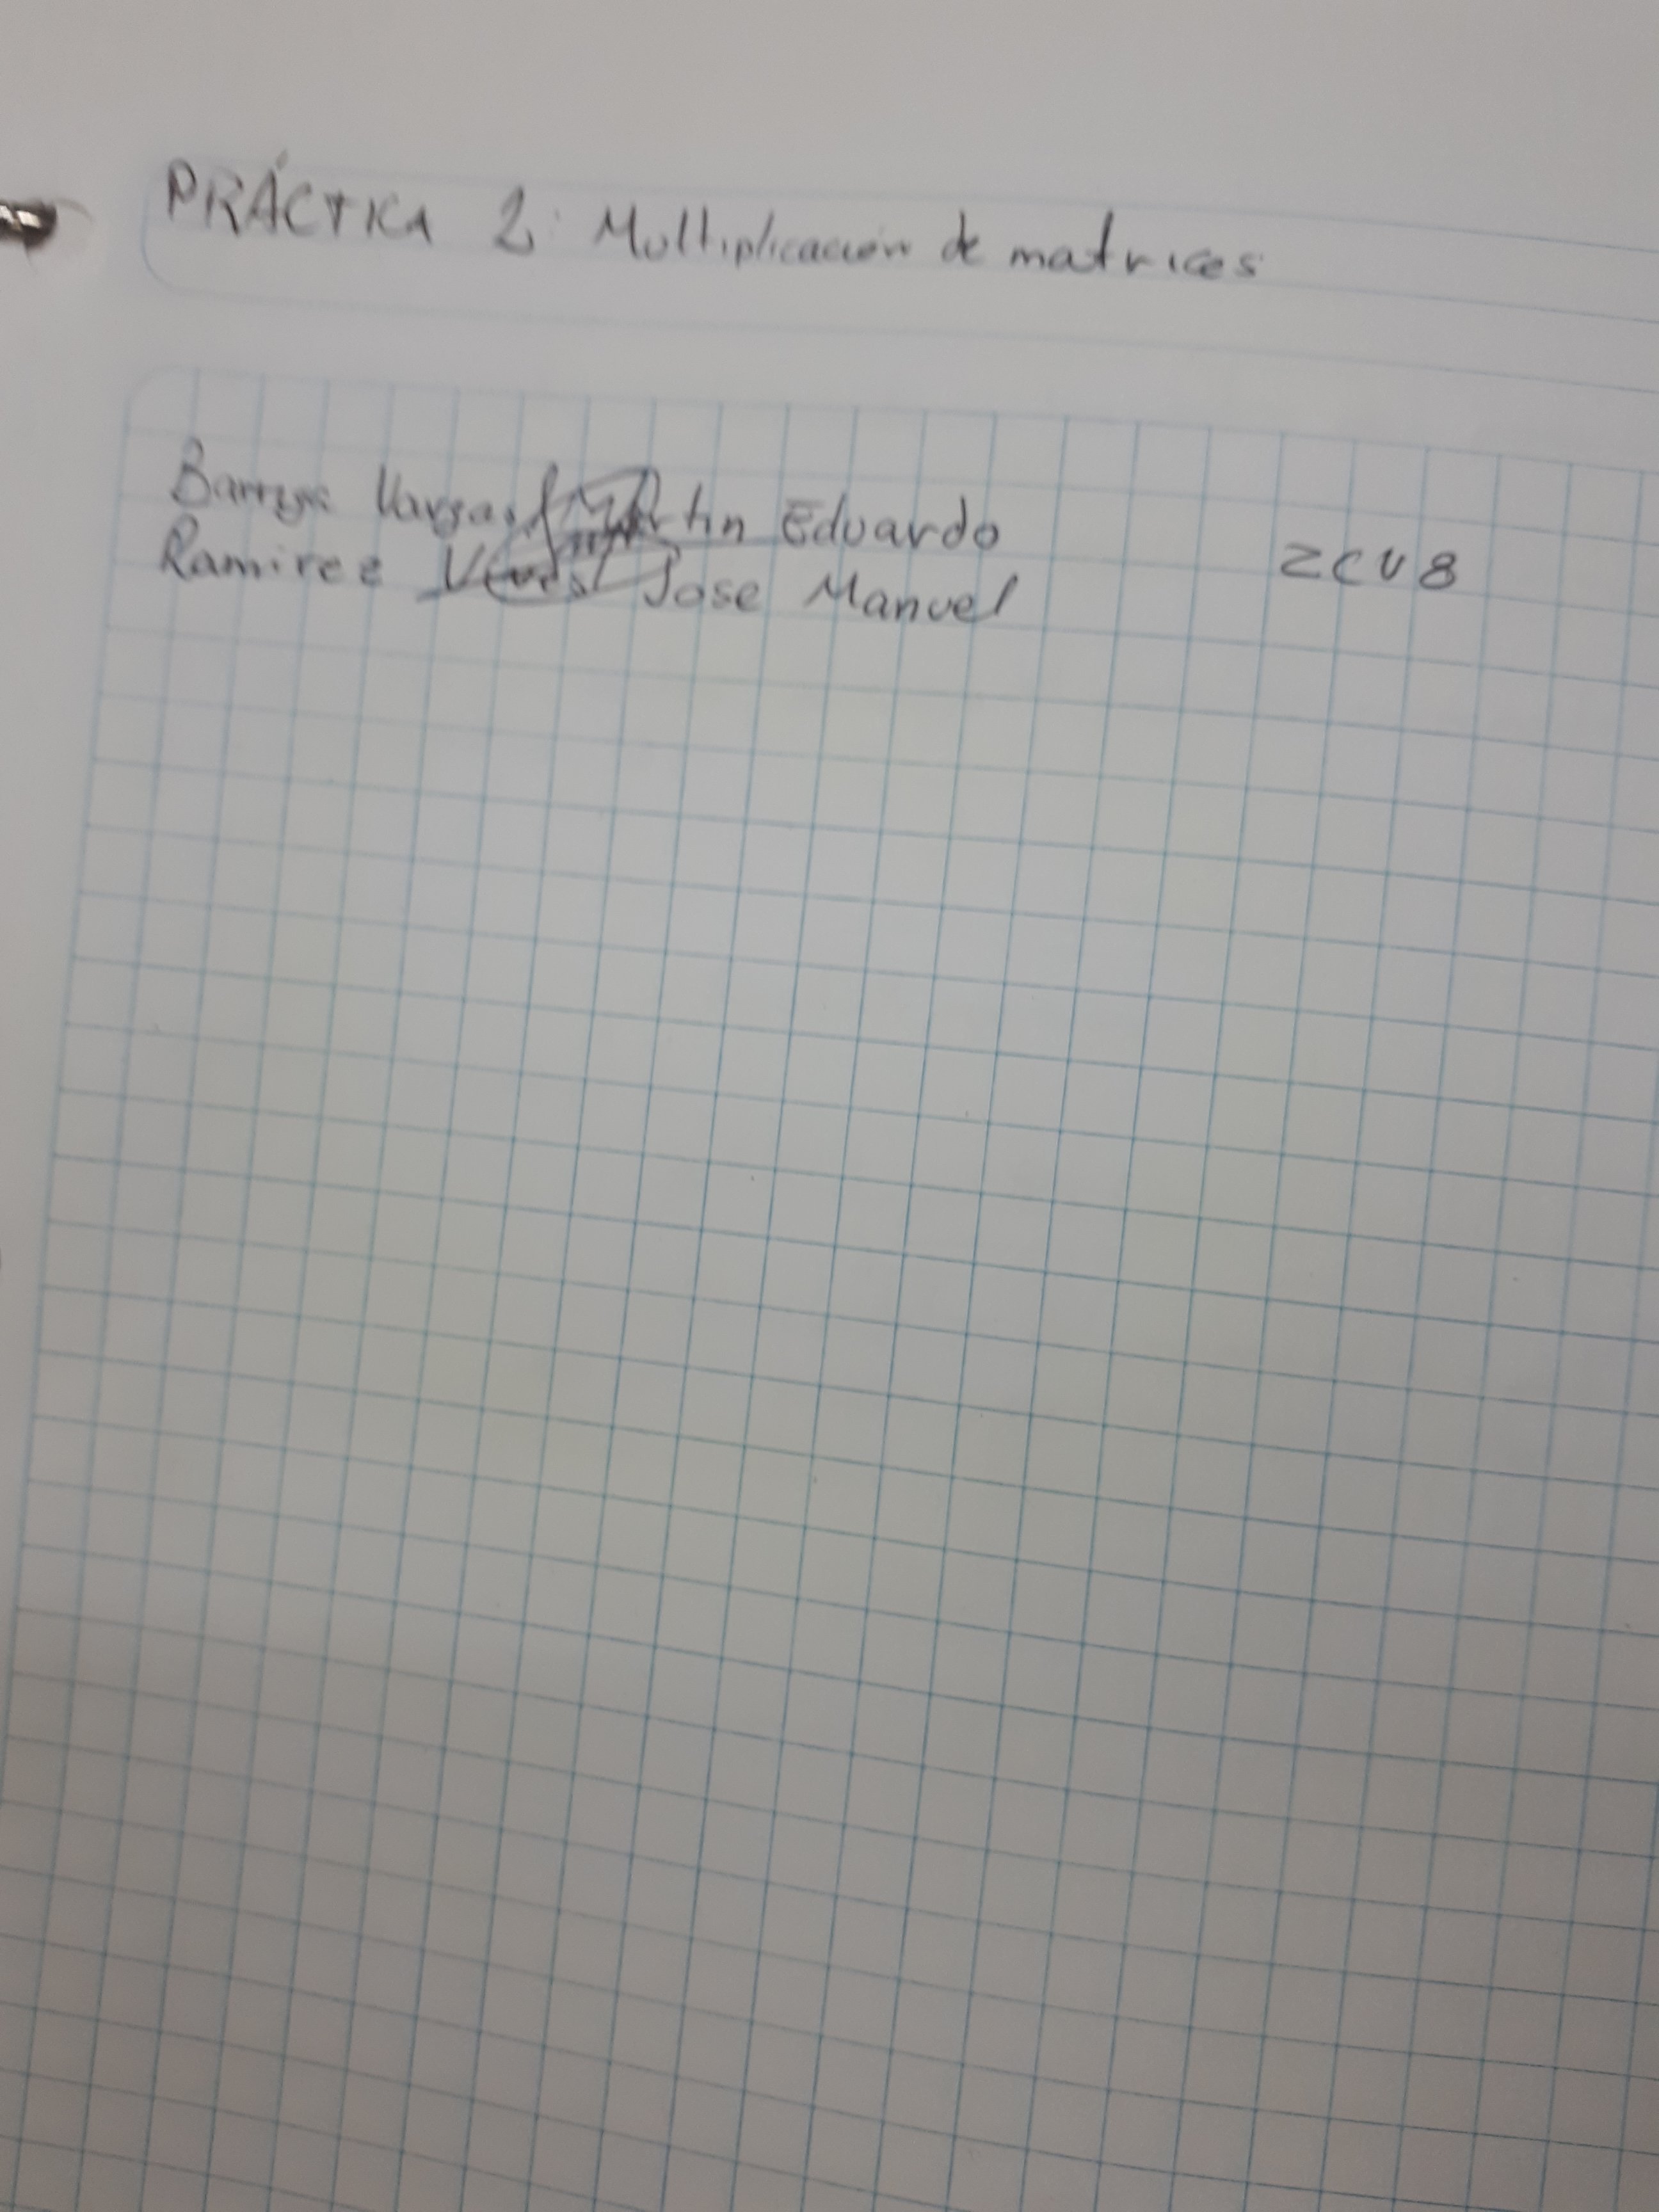 PRÁCTICA 2: Multiplicación de matrices
Vargas Martin Eduardo
Ramirez Jose Manuel
2CV8